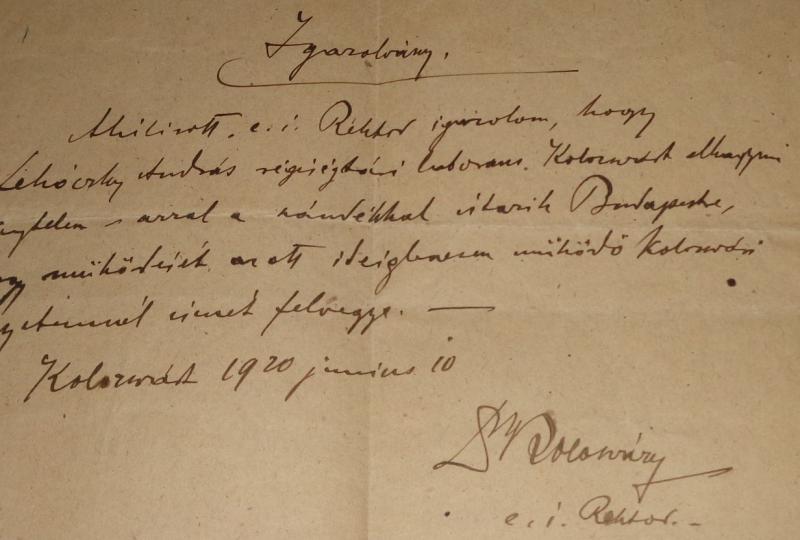 Igazolvány.
Alulírott e. i. Rektor igazolom, hogy
Lehóczky András régiségtári laborans Kolozsvárt elhagyni
ytelen s azzal a szándékkal utazik Budapestre,
gy működését az ott ideiglenesen működő kolozsvári
yetemnél ismét felvegye. —
Kolozsvárt 1920 június 10
Dr
e. i. Rektor. -